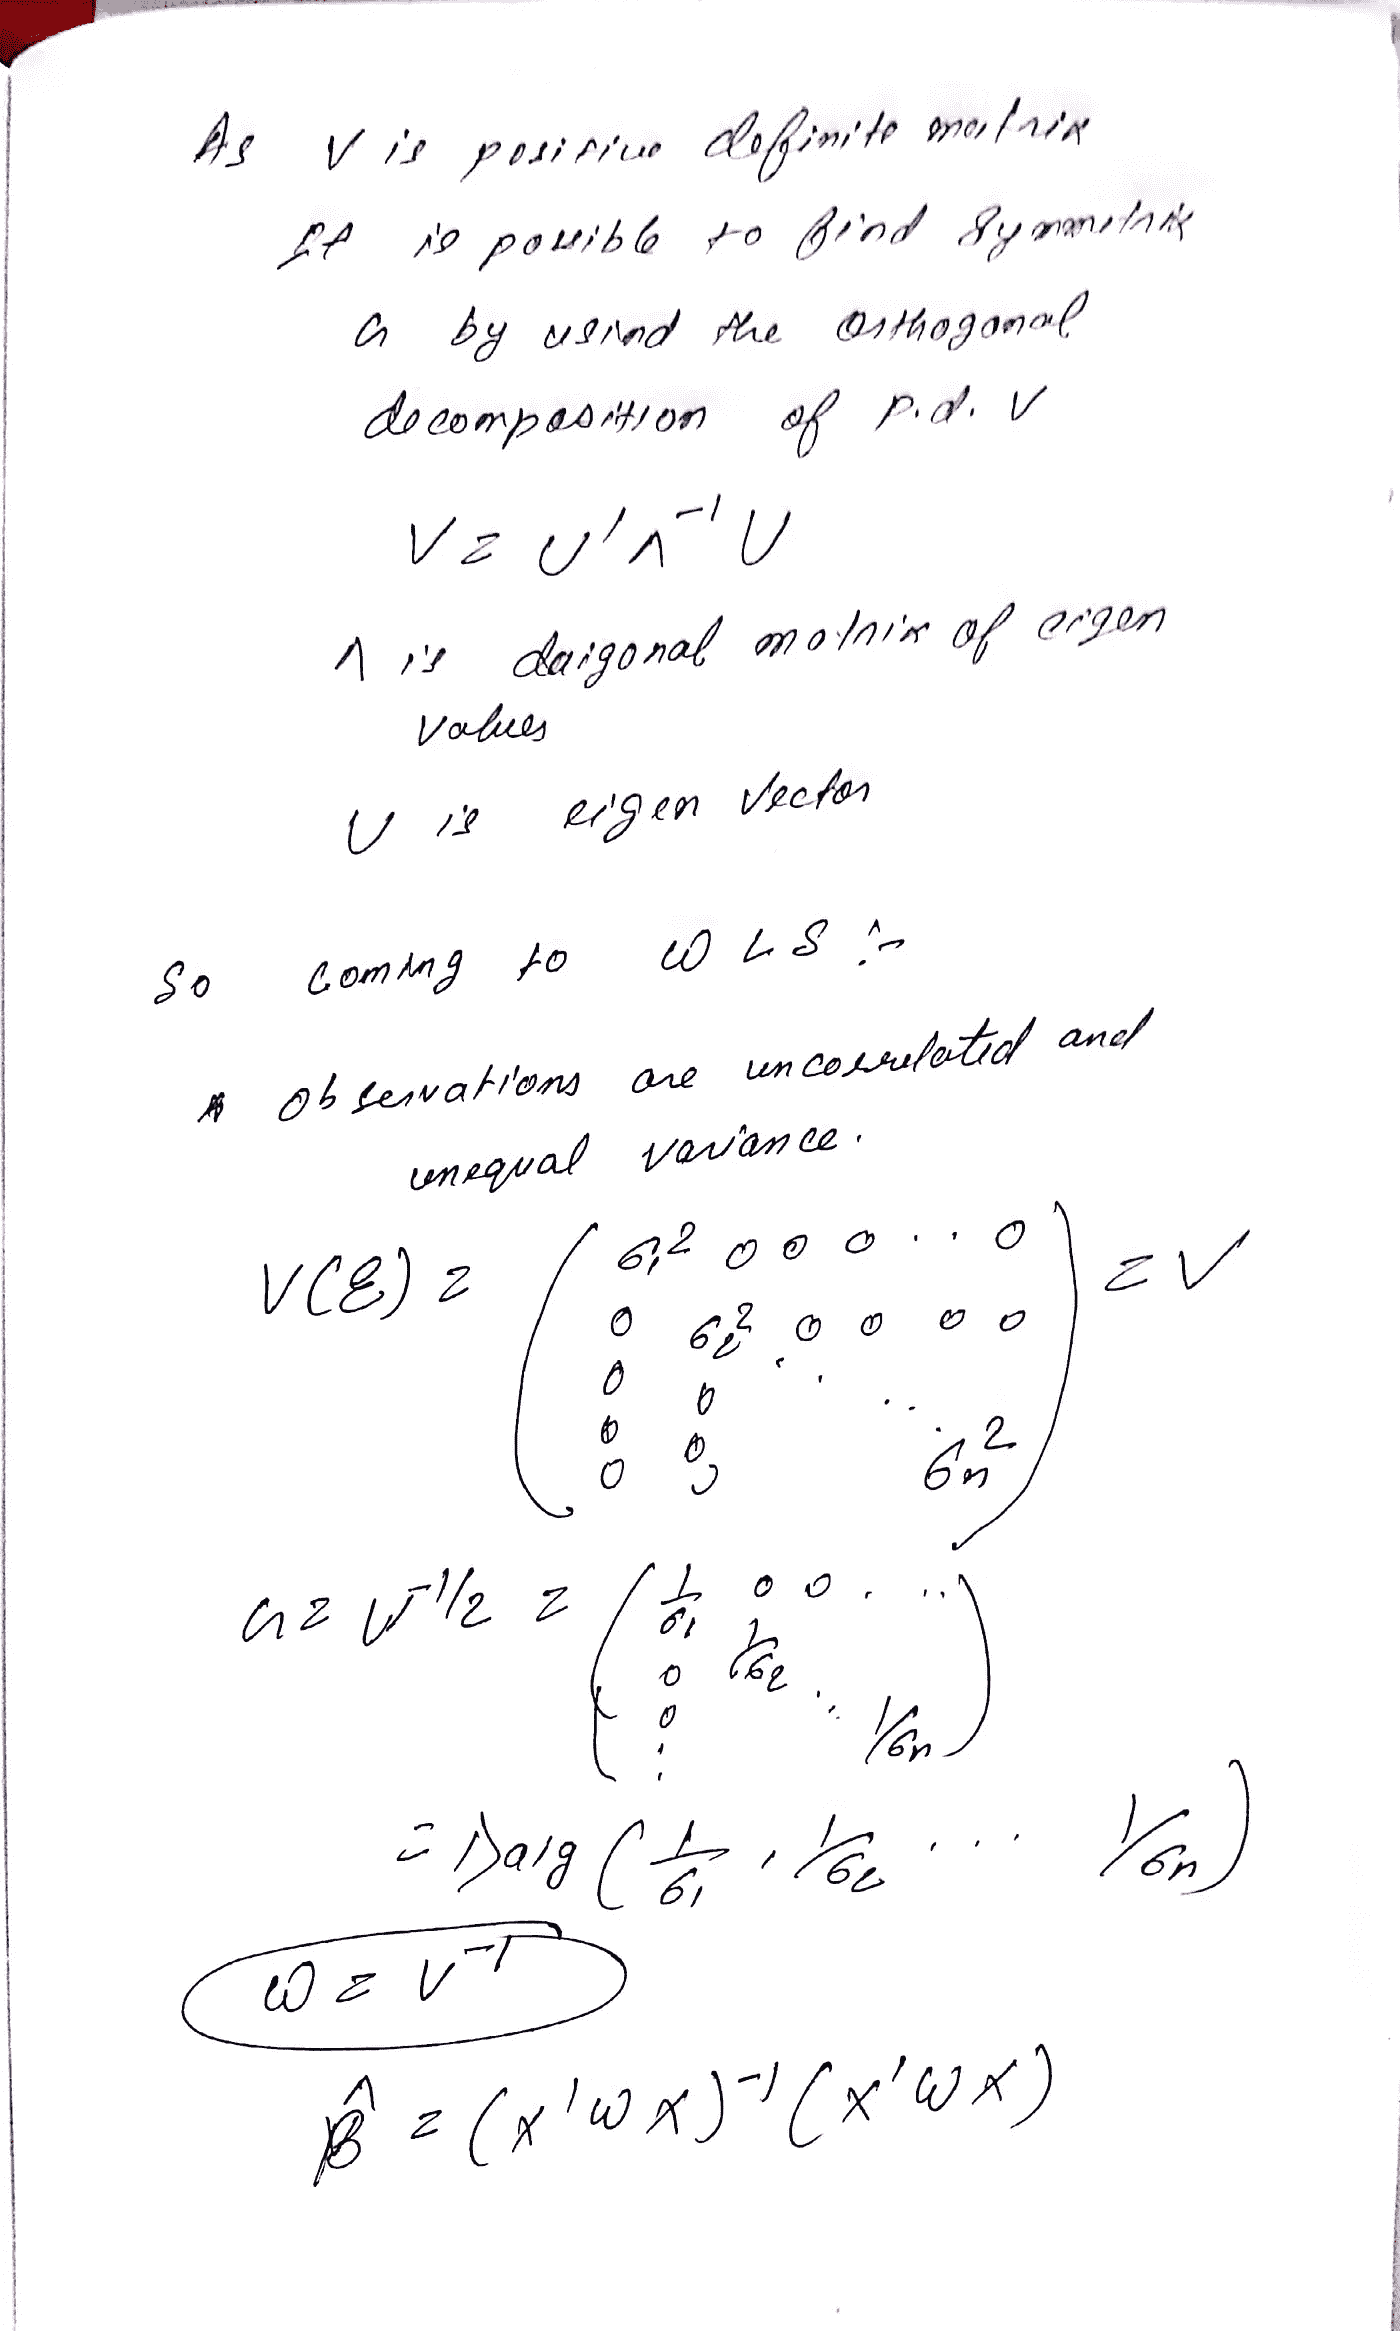 As V is positive definite matrix
It is possible to find symmetrik
G by usind the orthogonal
decomposition of p.d. V
V = U' Λ⁻¹ U
Λ is daigonal matrix of eigen
values
U is eigen vector
So coming to WLS :-
observations are uncorrelated and
unequal variance.
V(ε) = ( σ₁² 0 0 0 . . 0 ) = V
0 σ₂² 0 0 0 0
0 0 . . . .
0 0
0 0 σn²
G = V^-1/2 = ( 1/σ₁ 0 0 . . . )
0 1/σ₂
0 . . 1/σn
:
= Daig ( 1/σ₁ , 1/σ₂ . . . . 1/σn )
W = V⁻¹
β̂ = (X'WX)⁻¹ (X'WX)